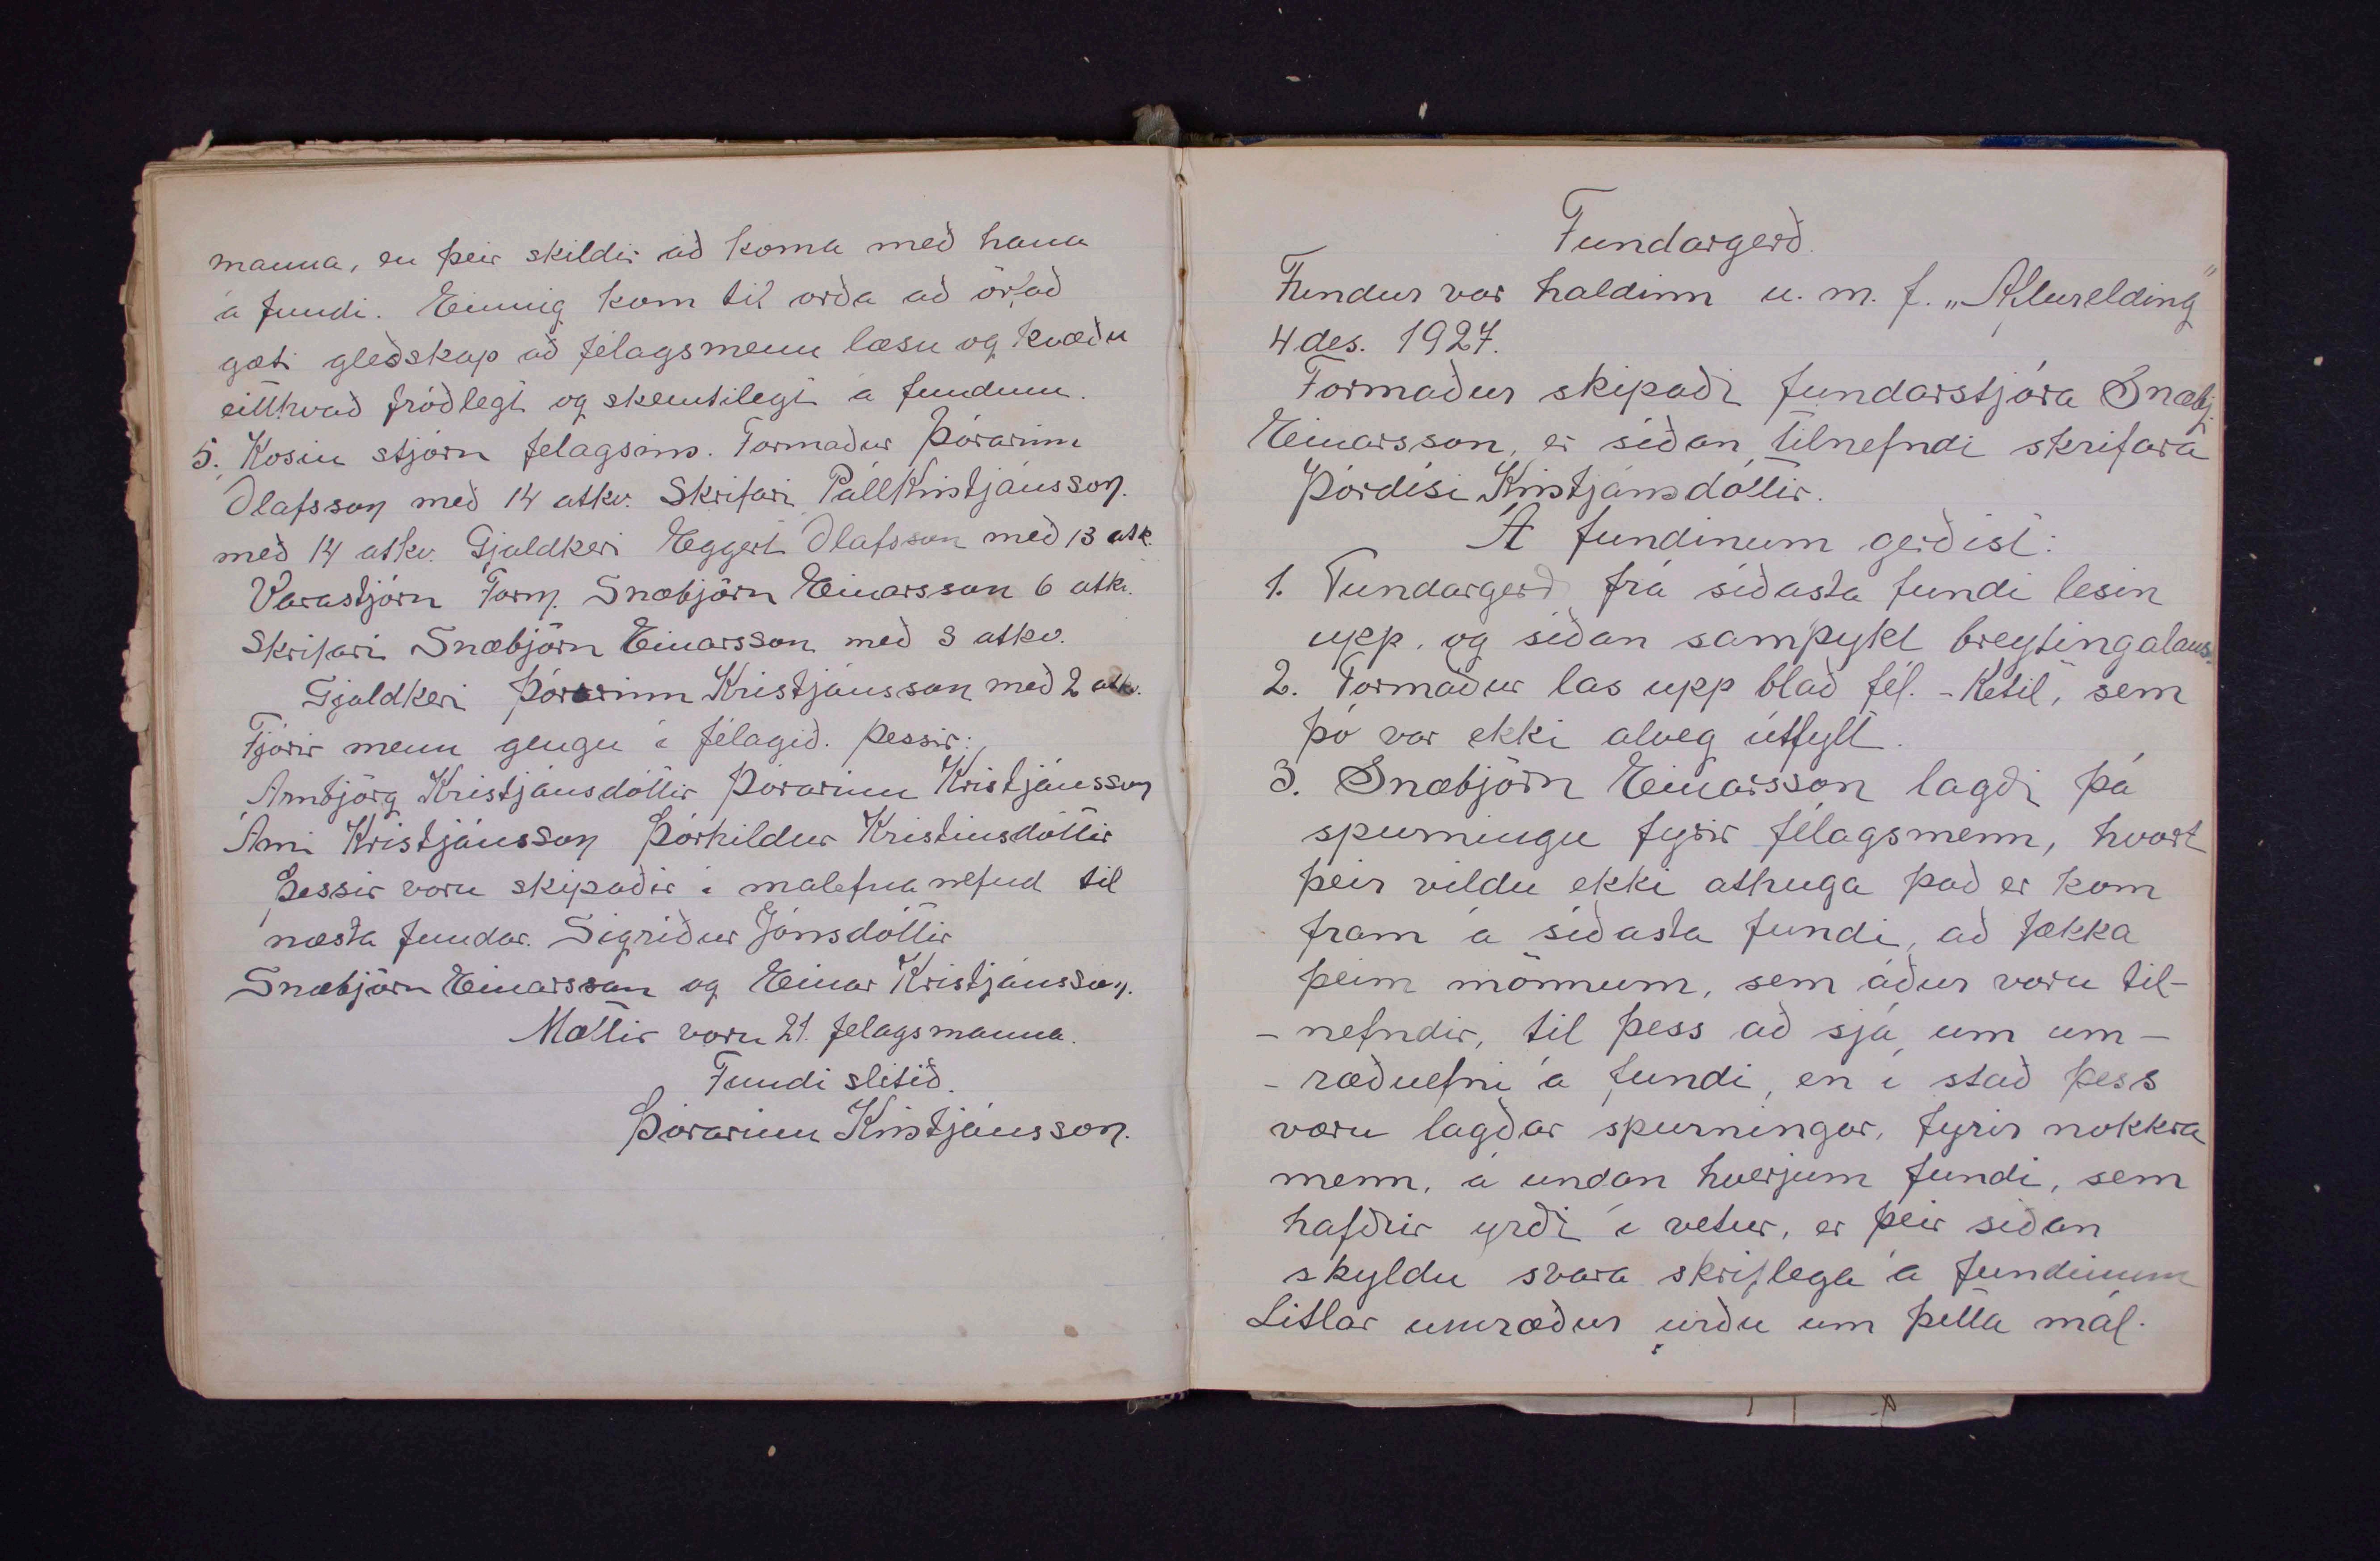 manna, en þeir skildir að koma með hana
á fundi. Einnig kom til orða að örfað
gæti gleðskap að félagsmenn læsu og kvæðu
eitthvað fróðlegt og skemtilegt á fundum.
5. Kosin stjórn felagsins. Formaður Þórarinn
Ólafsson með 14 atkv. Skrifari Páll Kristjánsson.
með 14 atkv. Gjaldkeri Eggert Ólafsson með 13 atk.
Varastjórn Form. Snæbjörn Einarsson 6 atkv.
Skrifari Snæbjörn Einarsson með 3 atkv.
Gjaldkeri Þórarinn Kristjánsson með 2 atkv.
Fjórir menn gengu í félagið. Þessir:
Arnbjörg Kristjánsdóttir Þórarinn Kristjánsson
Árni Kristjánsson Þórhildur Kristinsdóttir
Þessir voru skipaðir í malefna nefnd til
næsta fundar. Sigríður Jónsdóttir
Snæbjörn Einarsson og Einar Kristjánsson.
Mættir voru 21. felagsmanna.
Fundi slitið.
Þórarinn Kristjánsson.
Fundargerð.
Fundur var haldinn u. m. f. „Afturelding"
4 des. 1927.
Formaður skipaði fundarstjóra Snæbj.
Einarsson, er síðan tilnefndi skrifara
Þórdísi Kristjánsdóttir.
Á fundinum gerðist:
1. Fundargerð frá síðasta fundi lesin
upp. og síðan samþykt breytingalaus.
2. Formaður las upp blað fél. - Ketil, sem
þó var ekki alveg útfyllt.
3. Snæbjörn Einarsson lagði þá
spurningu fyrir félagsmenn, hvort
þeir vildu ekki athuga það er kom
fram á síðasta fundi, að fækka
þeim mönnum, sem áður voru til-
- nefndir, til þess að sjá um um-
- ræðuefni á fundi, en í stað þess
væru lagðar spurningar, fyrir nokkra
menn, á undan hverjum fundi, sem
hafðir yrði í vetur, er þeir síðan
skyldu svara skriflega á fundinum
Litlar umræður urðu um þetta mál.